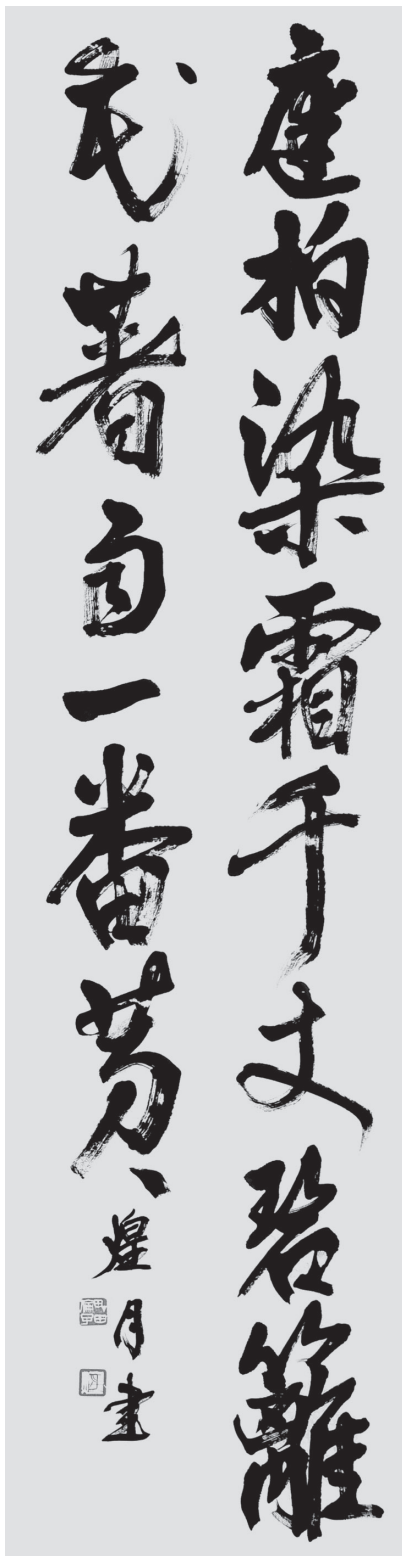 庭柏染霜千丈碧籬
花著雨一番黄
煌月書